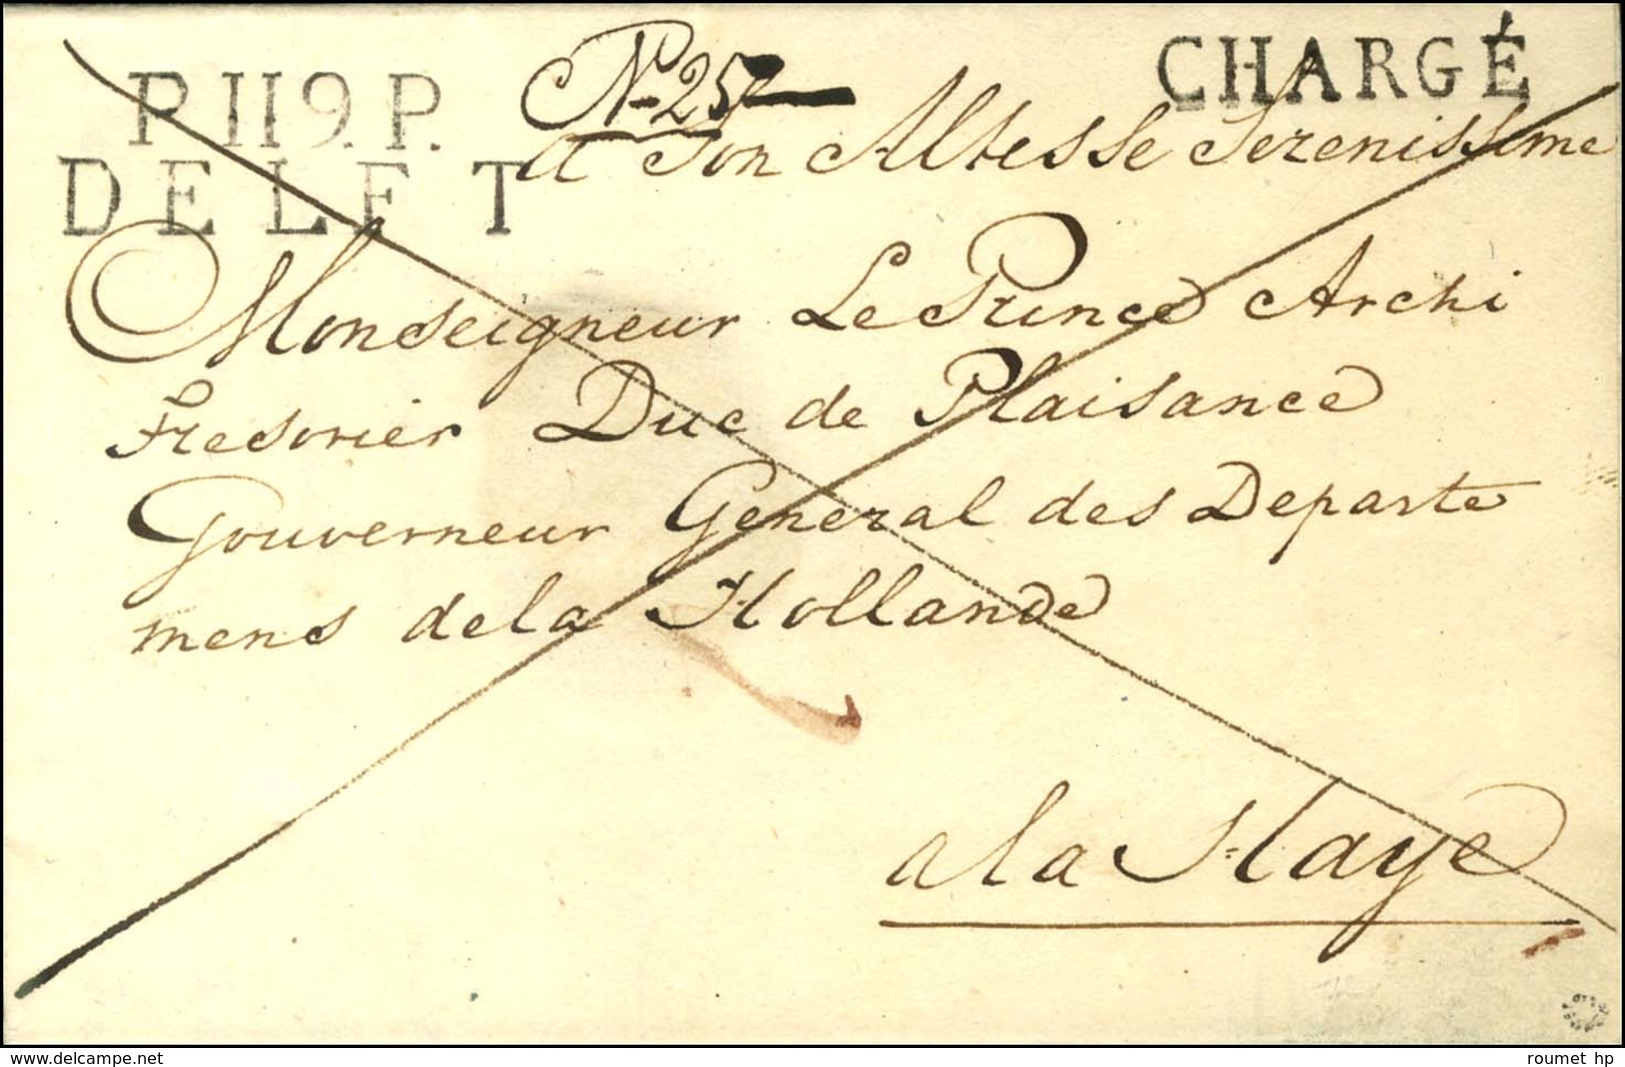 P.119.P.
DELFT
CHARGÉ
N 257
a Son Altesse Serenissime
Monseigneur Le Prince Archi
Tresorier Duc de Plaisance
Gouverneur General des Departe
mens de la Hollande
a la Haye
www.delcampe.net
roumet hp